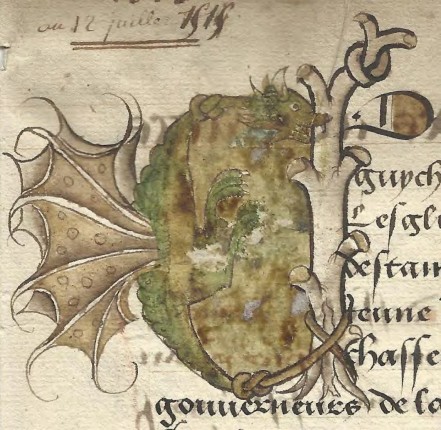 au 12 juillet 1515
guych
Les gl
destam
tenne
chasse
gouuerneurs de la